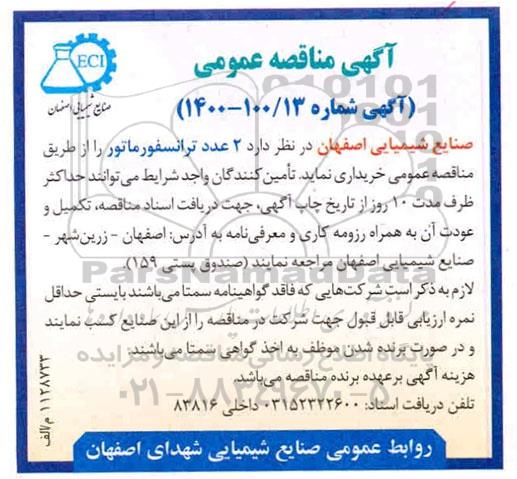 ECI
صنایع شیمیایی اصفهان
آگهی مناقصه عمومی
(آگهی شماره ۱۰۰/۱۳-۱۴۰۰)
صنایع شیمیایی اصفهان در نظر دارد ۲ عدد ترانسفورماتور را از طریق
مناقصه عمومی خریداری نماید. تأمین کنندگان واجد شرایط می‌توانند حداکثر
ظرف مدت ۱۰ روز از تاریخ چاپ آگهی، جهت دریافت اسناد مناقصه، تکمیل و
عودت آن به همراه رزومه کاری و معرفی‌نامه به آدرس: اصفهان - زرین‌شهر -
صنایع شیمیایی اصفهان مراجعه نمایند (صندوق پستی ۱۵۹).
لازم به ذکر است شرکت‌هایی که فاقد گواهینامه سمتا می‌باشند بایستی حداقل
نمره ارزیابی قابل قبول جهت شرکت در مناقصه را از این صنایع کسب نمایند
و در صورت برنده شدن موظف به اخذ گواهی سمتا می‌باشند.
هزینه آگهی برعهده برنده مناقصه می‌باشد.
تلفن دریافت اسناد: ۰۳۱۵۲۲۲۲۶۰۰ داخلی ۸۳۸۱۶
۱۱۲۸۷۳۳ م/الف
روابط عمومی صنایع شیمیایی شهدای اصفهان
ParsNamadData
پایگاه اطلاع رسانی مناقصه و مزایده
۰۲۱-۸۸۳۴۹۶۷۰-۵